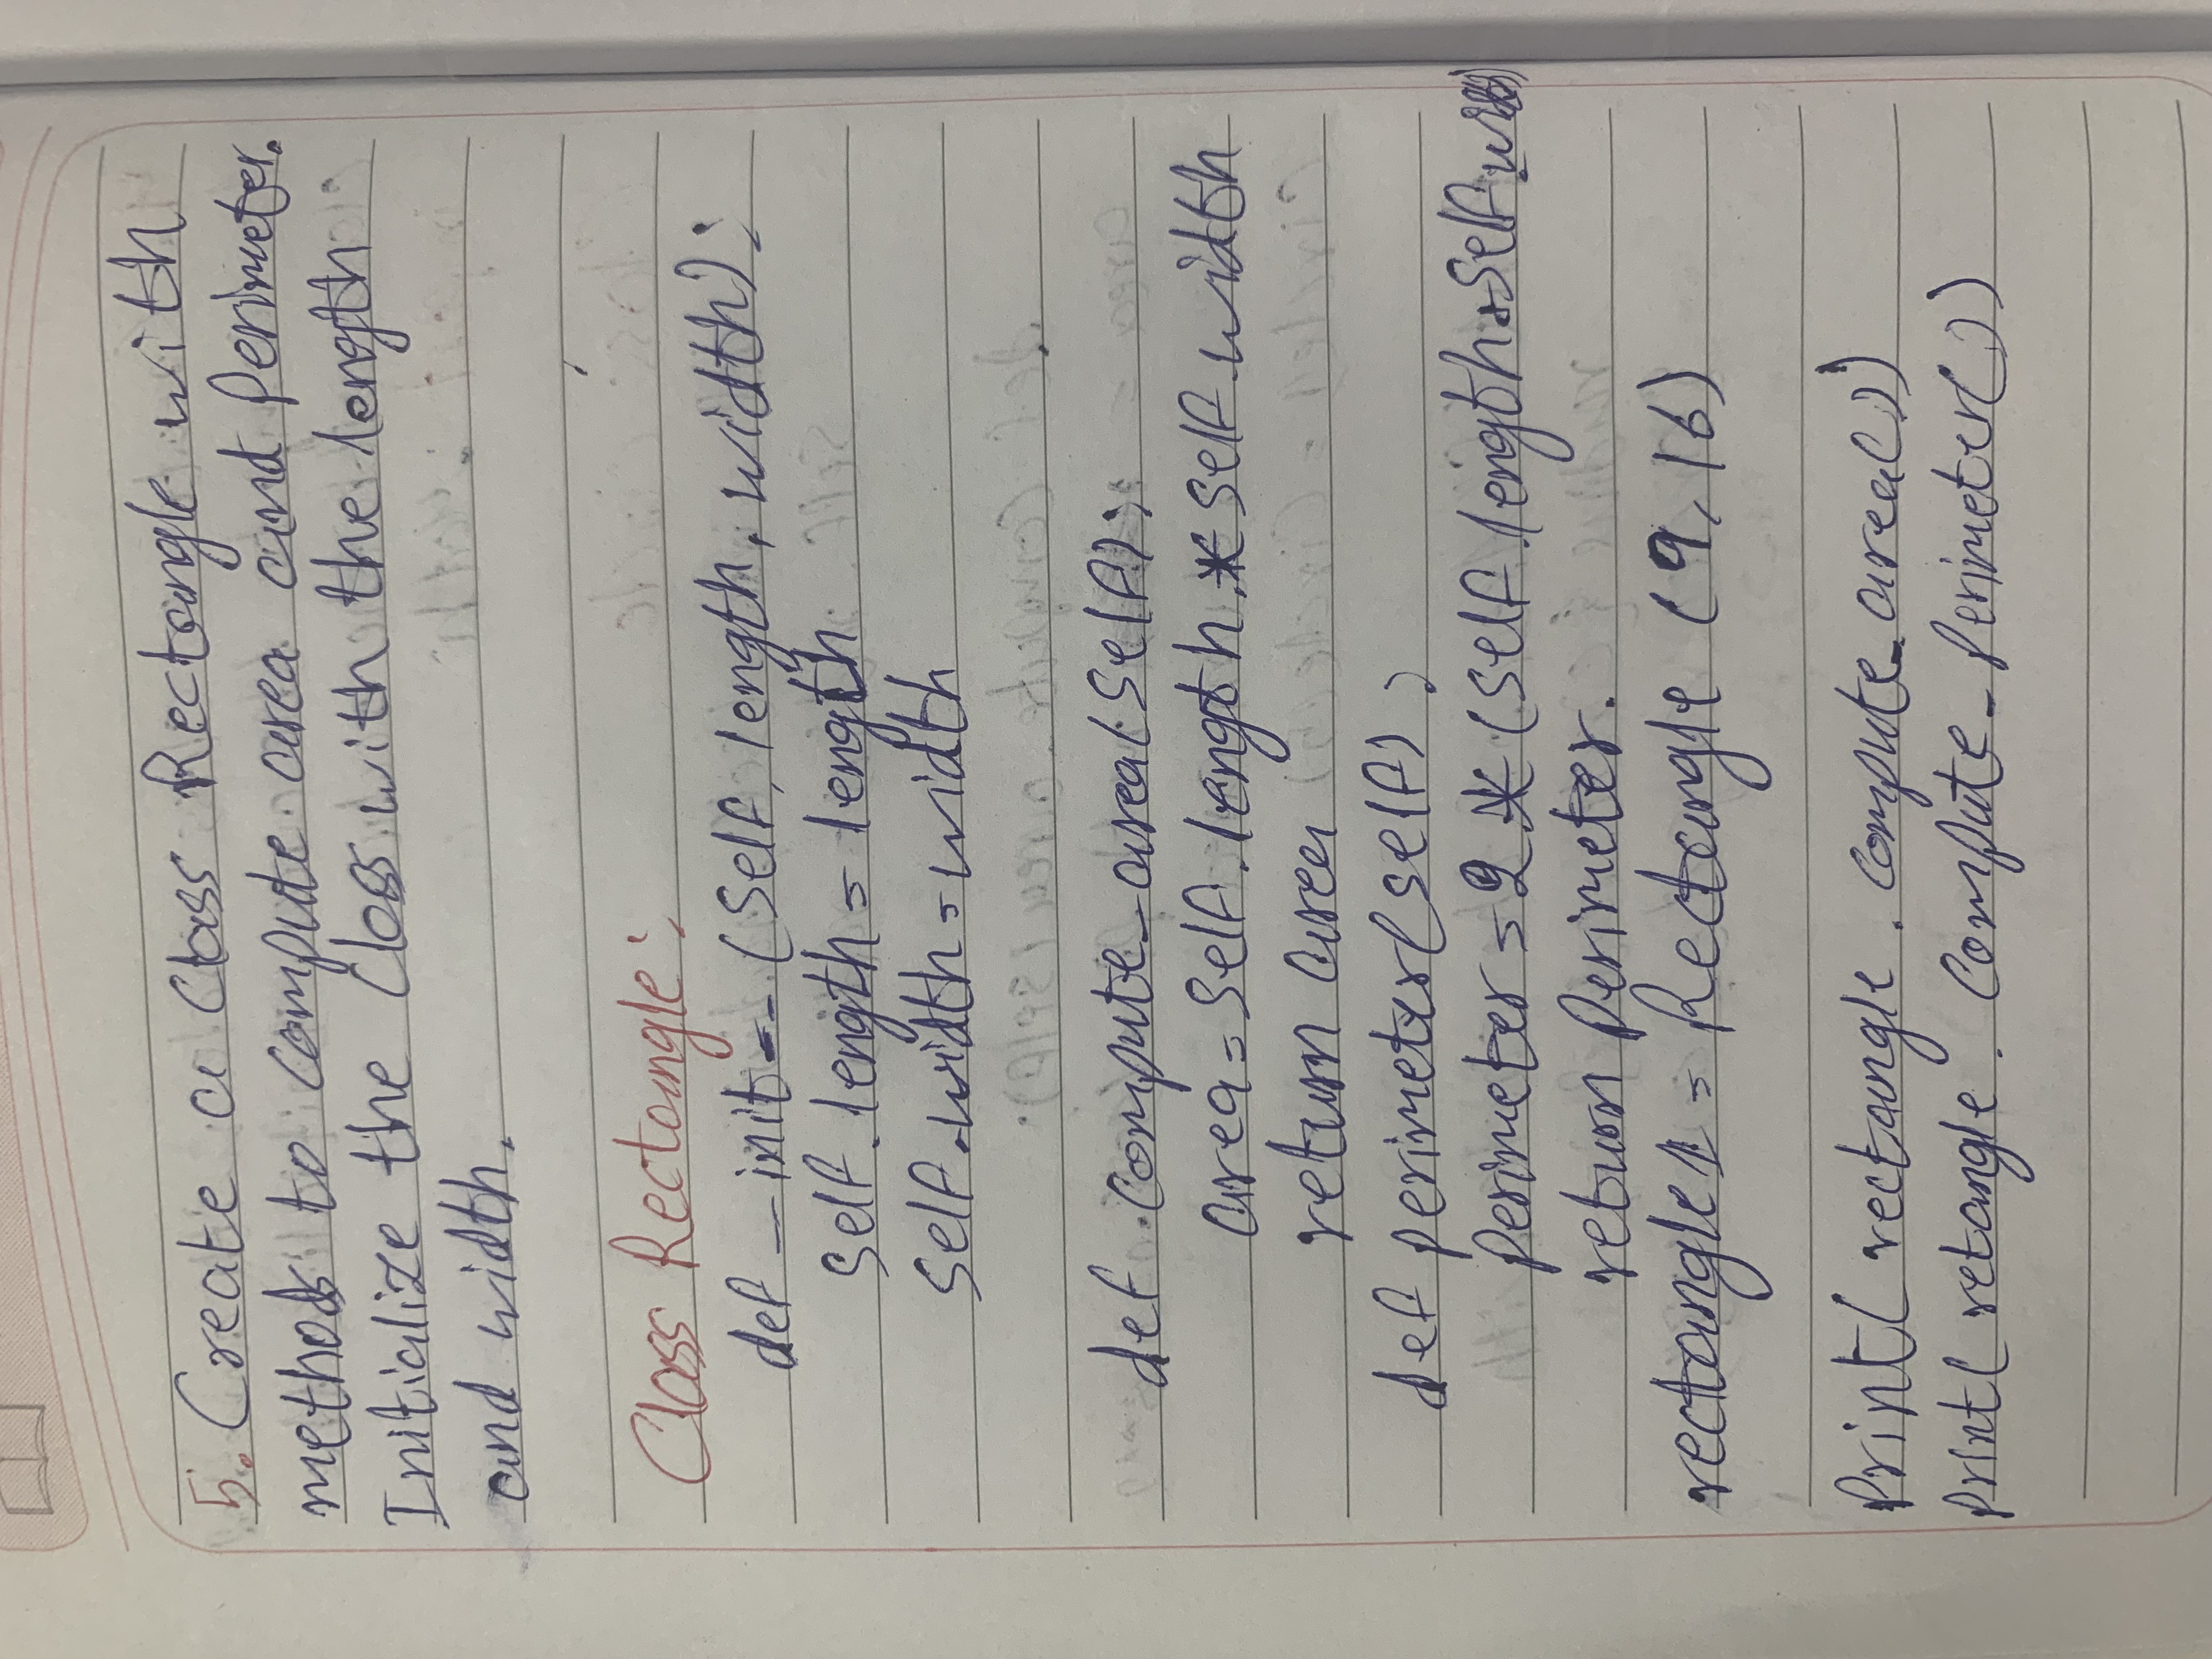 5. Create a Class Rectangle with
methods to compute area and Perimeter.
Initialize the Class with the length
and width.
Class Rectangle:
def _init-- (Self, length, width):
Self.length = length
Self.width = width
def compute_area(Self):
area = Self.length * Self.width
return area
def perimeter(self):
Perimeter = 2 * (Self.length + Self.
return Perimeter.
rectangle1 = Rectangle (9, 16)
Print( rectangle . compute_area())
Print( retangle . Compute_Perimeter())